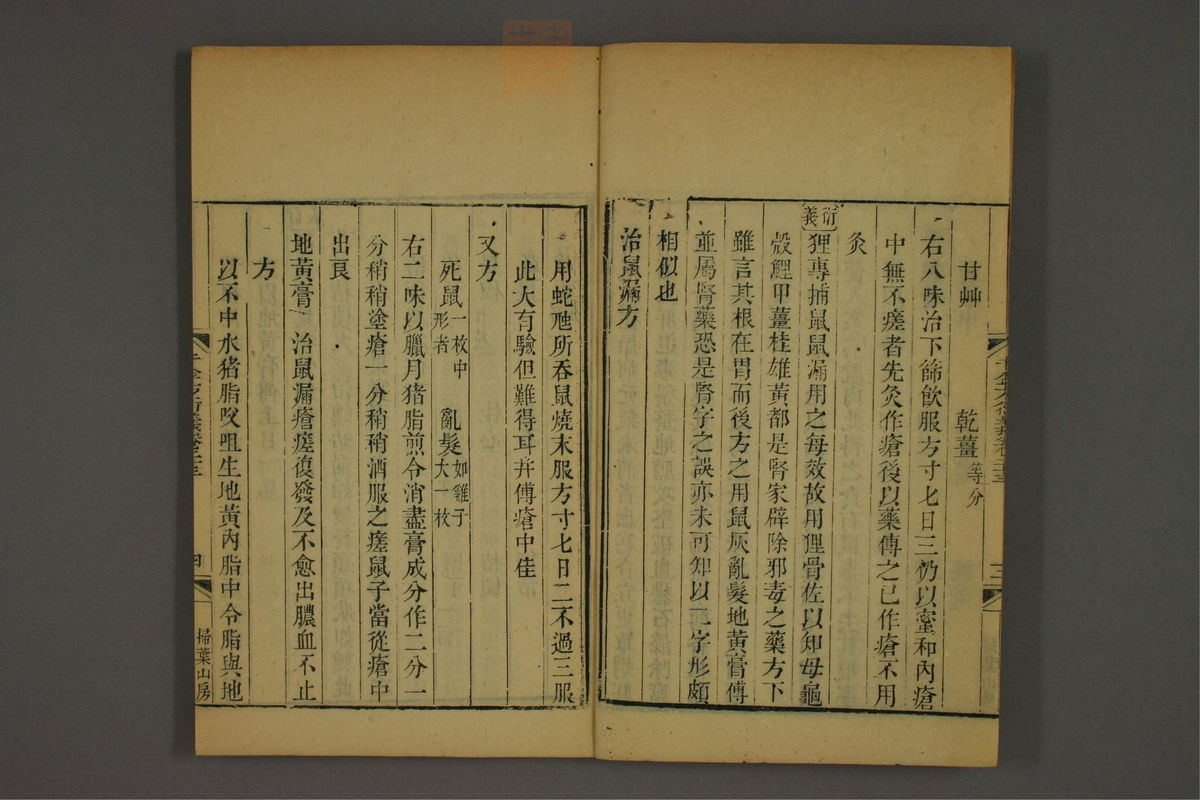 甘艸　乾薑等分
右八味治下篩飲服方寸七日三仍以蜜和內瘡
中無不瘥者先灸作瘡後以藥傅之已作瘡不用
灸
衍義
狸專捕鼠鼠漏用之每效故用狸骨佐以知母龜
殼鯉甲薑桂雄黃都是腎家辟除邪毒之藥方下
雖言其根在胃而後方之用鼠灰亂髮地黃膏傅
並屬腎藥恐是腎字之誤亦未可知以二字形頗
相似也
治鼠漏方
用蛇虺所吞鼠燒末服方寸七日二不過三服
此大有驗但難得耳并傅瘡中佳
又方
死鼠一枚中形者　亂髮如雞子大一枚
右二味以臘月猪脂煎令消盡膏成分作二分一
分稍稍塗瘡一分稍稍酒服之瘥鼠子當從瘡中
出良
地黃膏　治鼠漏瘡瘥復發及不愈出膿血不止
方
以不中水猪脂㕮咀生地黃內脂中令脂與地
四
掃葉山房